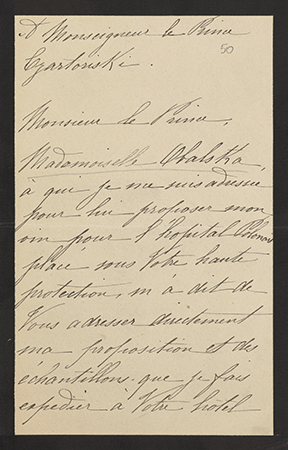 A Monseigneur le Prince
50
Czartoriski.
Monsieur le Prince,
Mademoiselle Obalska,
à qui je me suis adressée
pour lui proposer mon
vin pour l'hopital
placé sous Votre haute
protection, m'a dit de
Vous adresser directement
ma proposition et des
échantillons que je fais
expedier à Votre hôtel